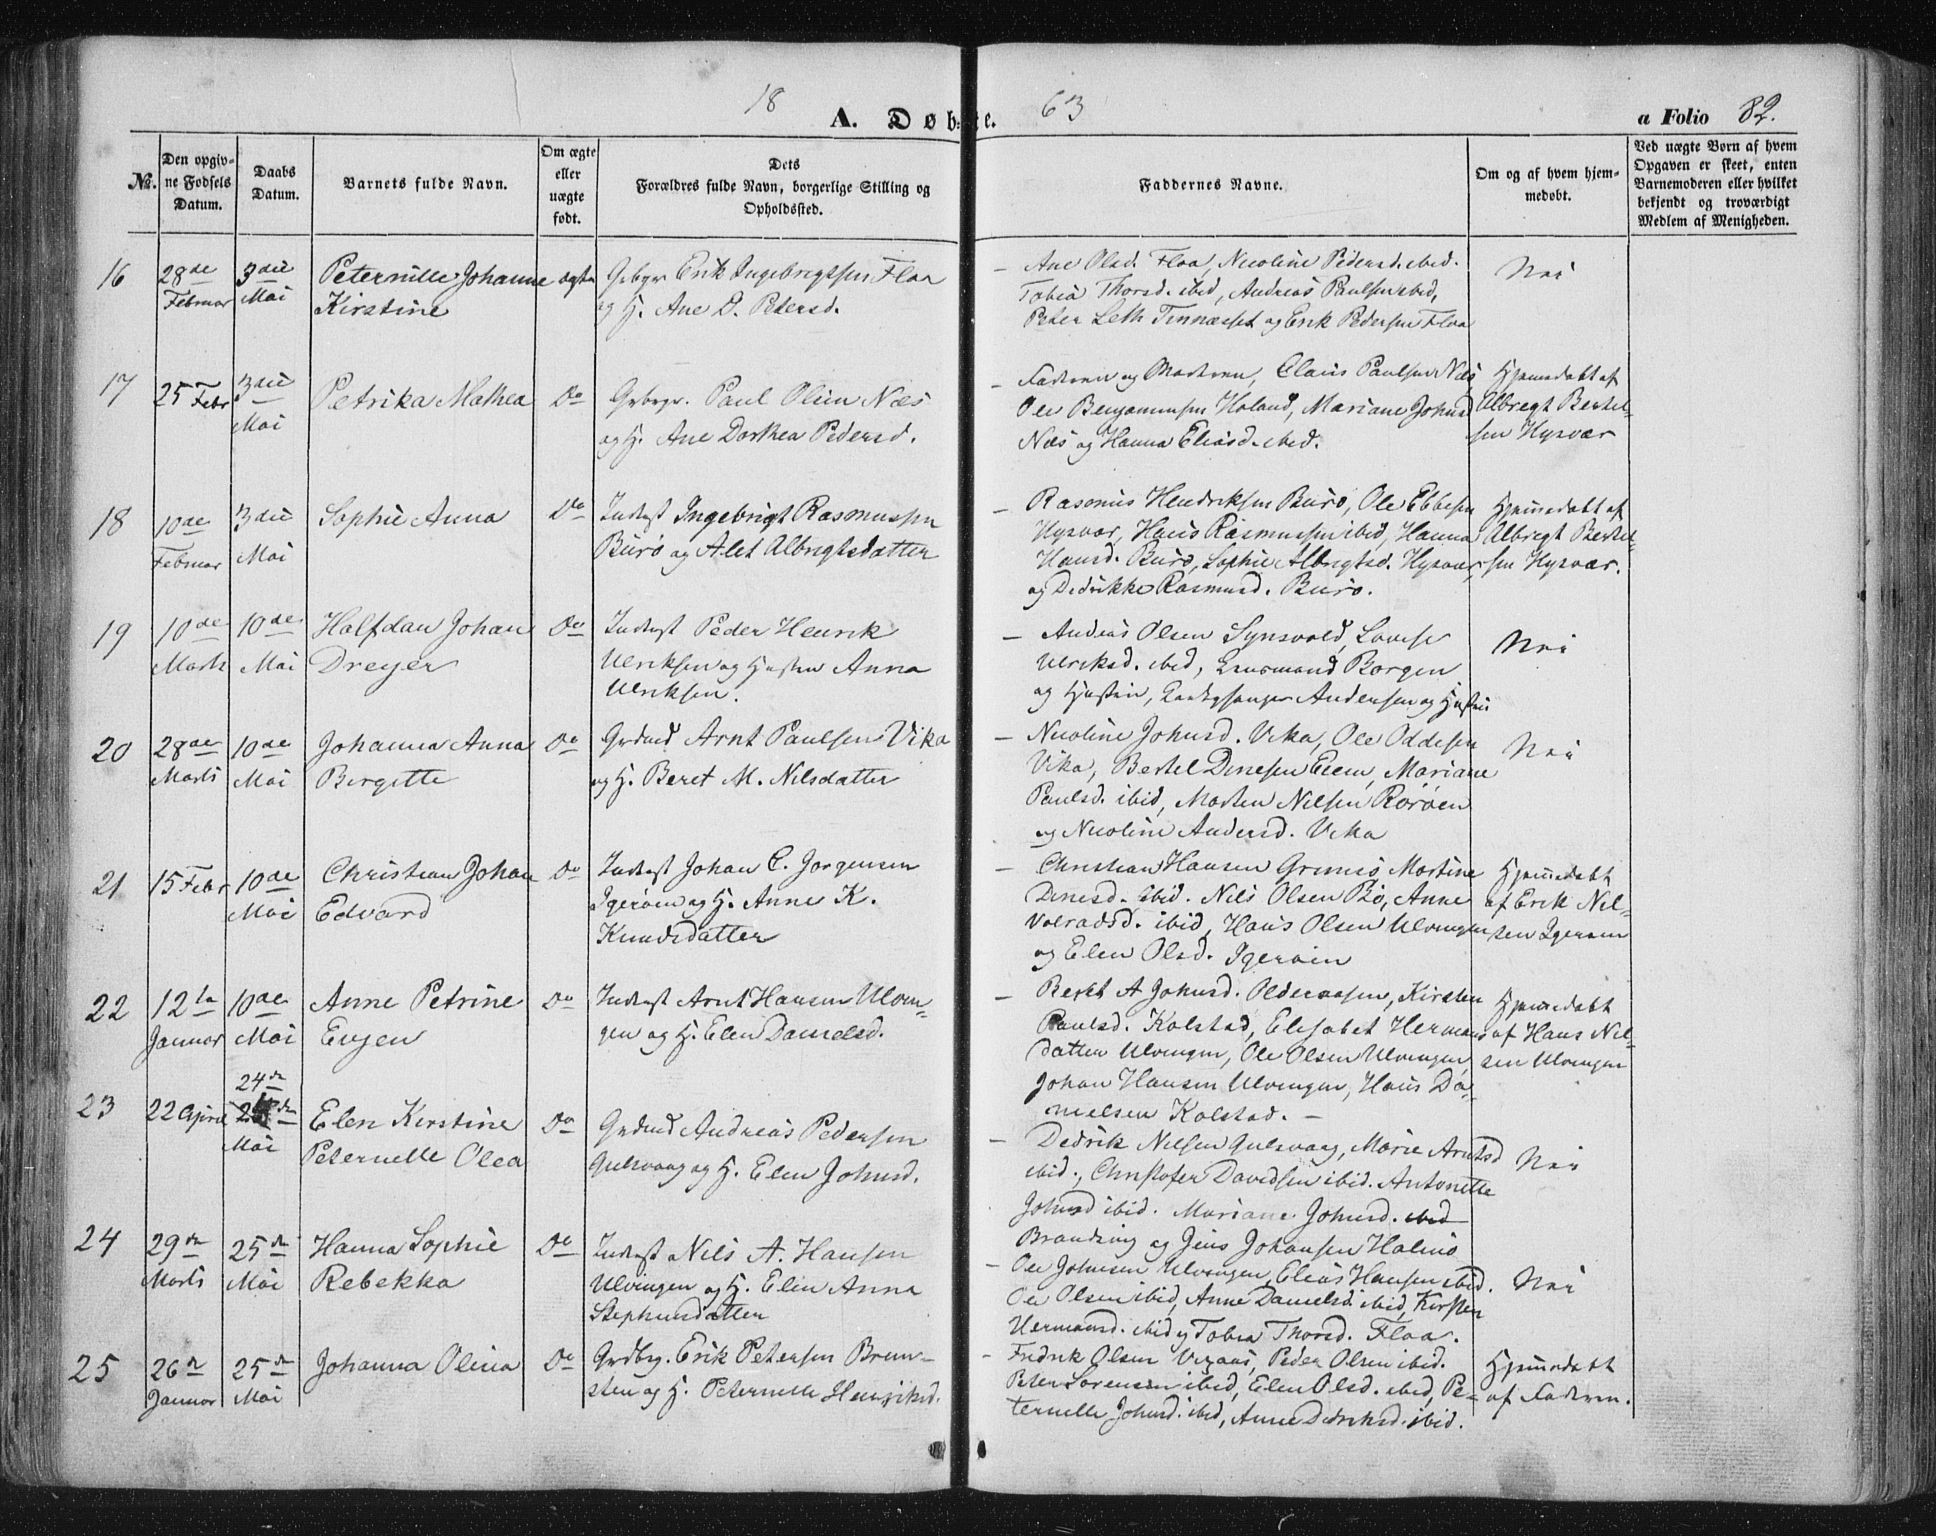 18 63
A. Døbte.
a Folio 82.
No.
Den opgivne Fødsels Datum.
Daabs Datum.
Barnets fulde Navn.
Om ægte eller uægte født.
Dets Forældres fulde Navn, borgerlige Stilling og Opholdssted.
Faddernes Navne.
Om og af hvem hjemmedøbt.
Ved uægte Børn af hvem Opgaven er skeet, enten Barnemoderen eller hvilket bekjendt og troværdigt Medlem af Menigheden.
16 28de Februar 3die Mai
Peternille Johanne Kirstine
ægte
Grbgr Erik Ingebrigtsen Floa
og H. Ane D. Petersd.
– Ane Olsd. Floa, Nicoline Pedersd. ibid.
Tobia Thorsd. ibid, Andreas Paulsen ibid,
Peter Leth Tennæset og Erik Pedersen Floa
Nei
17 25 Febr 3die Mai
Petrika Mathea
Do
Grbgr. Paul Olsen Næs
og H. Ane Dorthea Pedersd.
– Faderen og Moderen, Claus Paulsen Næs
Ole Benjaminsen Holand, Mariane Johnsd
Næs og Hanna Eliasd. ibid.
Hjemmedøbt af
Albregt Bertel-
sen Hysvær
18 10de Februar 3die Mai
Sophie Anna
Do
Inderst Ingebrigt Rasmussen
Burø og Alet Albrigtsdatter
– Rasmus Hendriksen Burø, Ole Ebbesen
Hysvær, Hans Rasmussen ibid, Hanna
Hansd. Burø, Sophie Albrigtsd. Hysvær,
og Dedrikke Rasmusd. Burø.
Hjemmedøbt af
Albregt Bertel-
sen Hysvær.
19 10de Marts 10de Mai
Halfdan Johan
Dreyer
Do
Inderst Peder Henrik
Ulriksen og Hustru Anna
Ulriksen.
– Andreas Olsen Synsvold, Lovise
Ulriksd. ibid, Lensmand Borgen
og Hustru, Kirkesanger Andersen og Hustru
Nei
20 28de Marts 10de Mai
Johanna Anna
Birgitte
Do
Grdmd Arnt Paulsen Vika
og H. Beret M. Nilsdatter
– Nicoline Johnsd. Vika, Ole Oddesen
Vika, Bertel Dinesen Eiem, Mariane
Paulsd. ibid, Morten Nilsen Rørøen
og Nicoline Andersd. Vika
Nei
21 15 Febr 10de Mai
Christian Johan
Edvard
Do
Inderst Johan C. Jørgensen
Igerøen og H. Anne K.
Knudsdatter
– Christian Hansen Grimsø, Martine
Dinesd. ibid. Nils Olsen Bø, Anne
Volradsd. ibid, Hans Olsen Ulvingen
og Elen Olsd. Igerøen
Hjemmedøbt
af Erik Nil-
sen Igerøen
22 12te Januar 10de Mai
Anne Petrine
Evjen
Do
Inderst Arnt Hansen Ulvin-
gen og H. Elen Danielsd.
– Beret A Johnsd. Olderaasen, Kirsten
Paulsd. Kolstad, Elisabet Hermans
datter Ulvingen, Ole Olsen Ulvingen,
Johan Hansen Ulvingen, Hans Da-
nielsen Kolstad. –
Hjemmedøbt
af Hans Nil-
sen Ulvingen
23 22 April 24de Mai
Elen Kirstine
Peternelle Olea
Do
Grdmd Andreas Pedersen
Gulsvaag og H. Elen Johnsd.
– Dedrik Nilsen Gulsvaag, Marie Arntsd
ibid., Christofer Davidsen ibid. Antonette
Johnsd ibid. Mariane Johnsd. ibid
Brandsing og Jens Johansen Holmø
Nei
24 29de Marts 25de Mai
Hanna Sophie
Rebekka
Do
Inderst Nils A. Hansen
Ulvingen og H. Elen Anna
Stephensdatter
– Ole Johnsen Ulvingen, Elias Hansen ibid.
Ole Olsen ibid, Anne Danielsd. ibid, Kirsten
Hermansd. ibid og Tobia Thorsd. Floa.
Nei
25 26de Januar 25de Mai
Johanna Olina
Do
Grdbgr. Erik Petersen Brem-
sten og H. Peternelle Henriksd.
– Fredrik Olsen Vegaas, Peder Olsen ibid.
Peter Sørensen ibid, Elen Olsd. ibid, Pe-
ternelle Johnsd. ibid, Anne Dedriksd. ibid.
Hjemmedøbt
af Faderen.